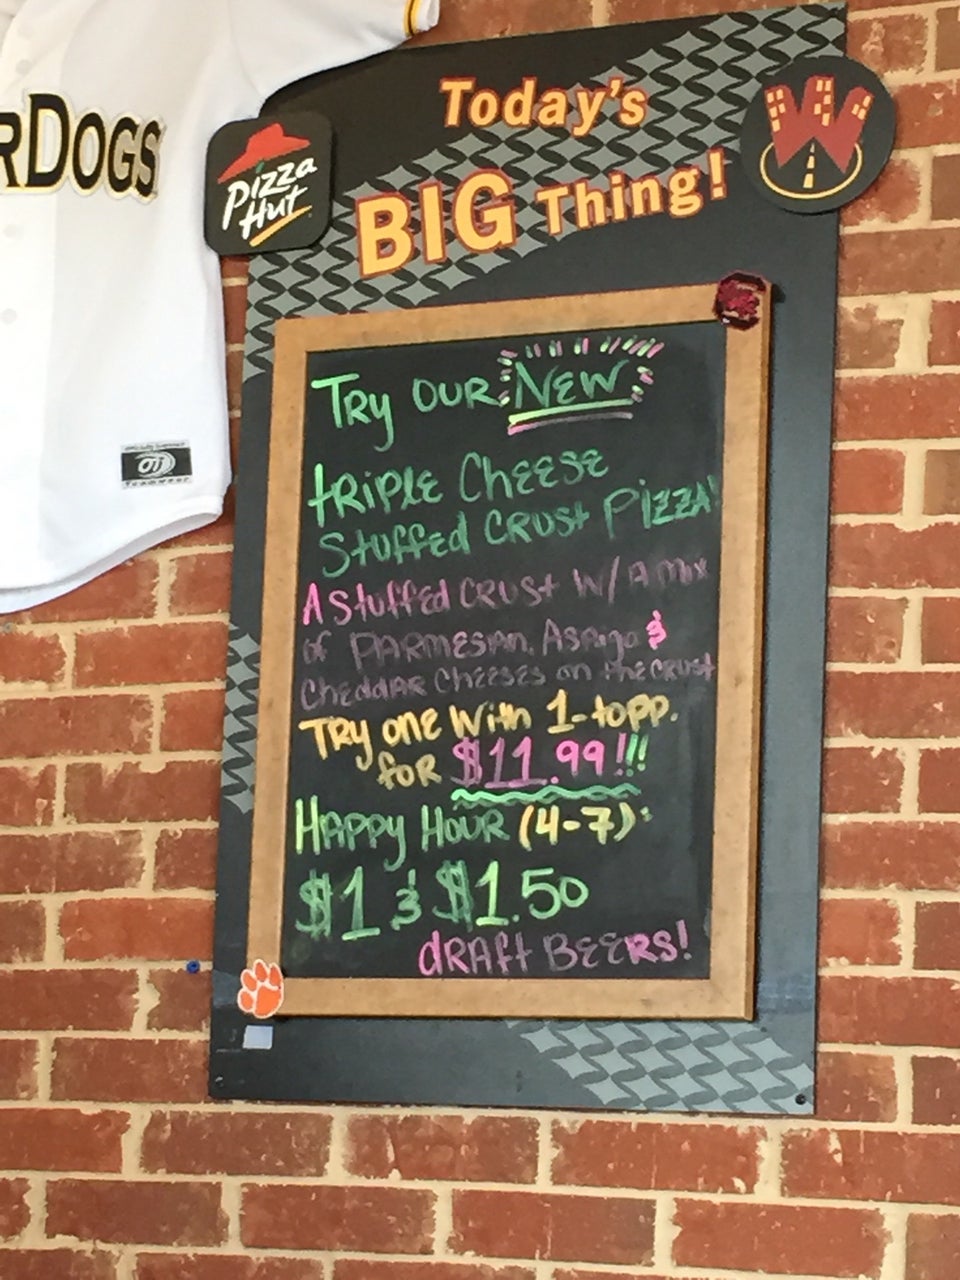 RDOGS
Pizza
Hut
Today's
BIG Thing!
W
TRY OUR NEW
TRIPLE CHEESE
STUFFED CRUST PIZZA!
A STUFFED CRUST W/ A MIX
of PARMESAN, ASAIGO &
CHEDDAR CHEESES on the CRUST
TRY one With 1-topp.
foR $11.99!!!
HAPPY HOUR (4-7):
$1 & $1.50
dRAft BEERS!